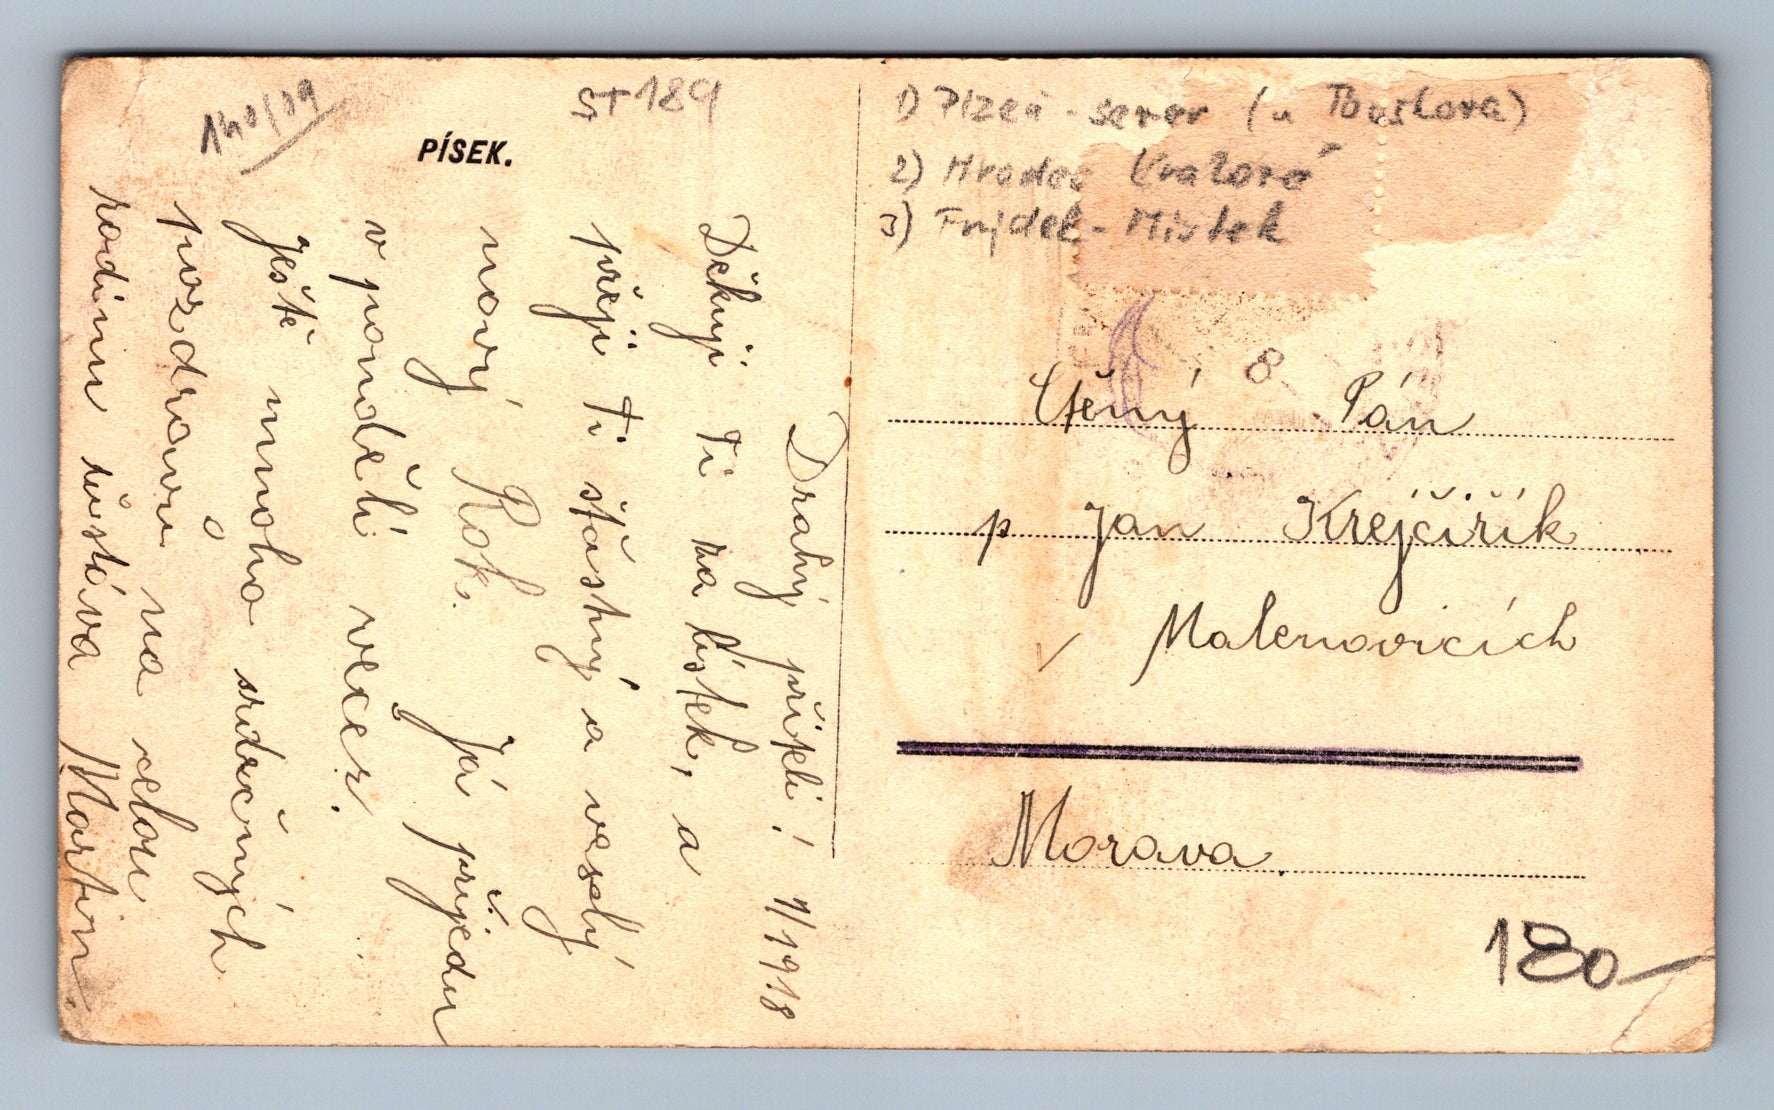 140/09
ST 189
PÍSEK.
Drahý příteli! 1/1918
Děkuji Ti za lístek, a
přeji Ti šťastný a veselý
nový Rok. Já přijedu
v pondělí večer.
Ještě mnoho srdečných
pozdravů na celou
rodinu zůstává Martin.
1) Plzeň - sever (u Touškova)
2) Hradec Králové
3) Frýdek - Místek
8
Ctěný Pán
p Jan Krejčiřík
Malenovicích
Morava
180